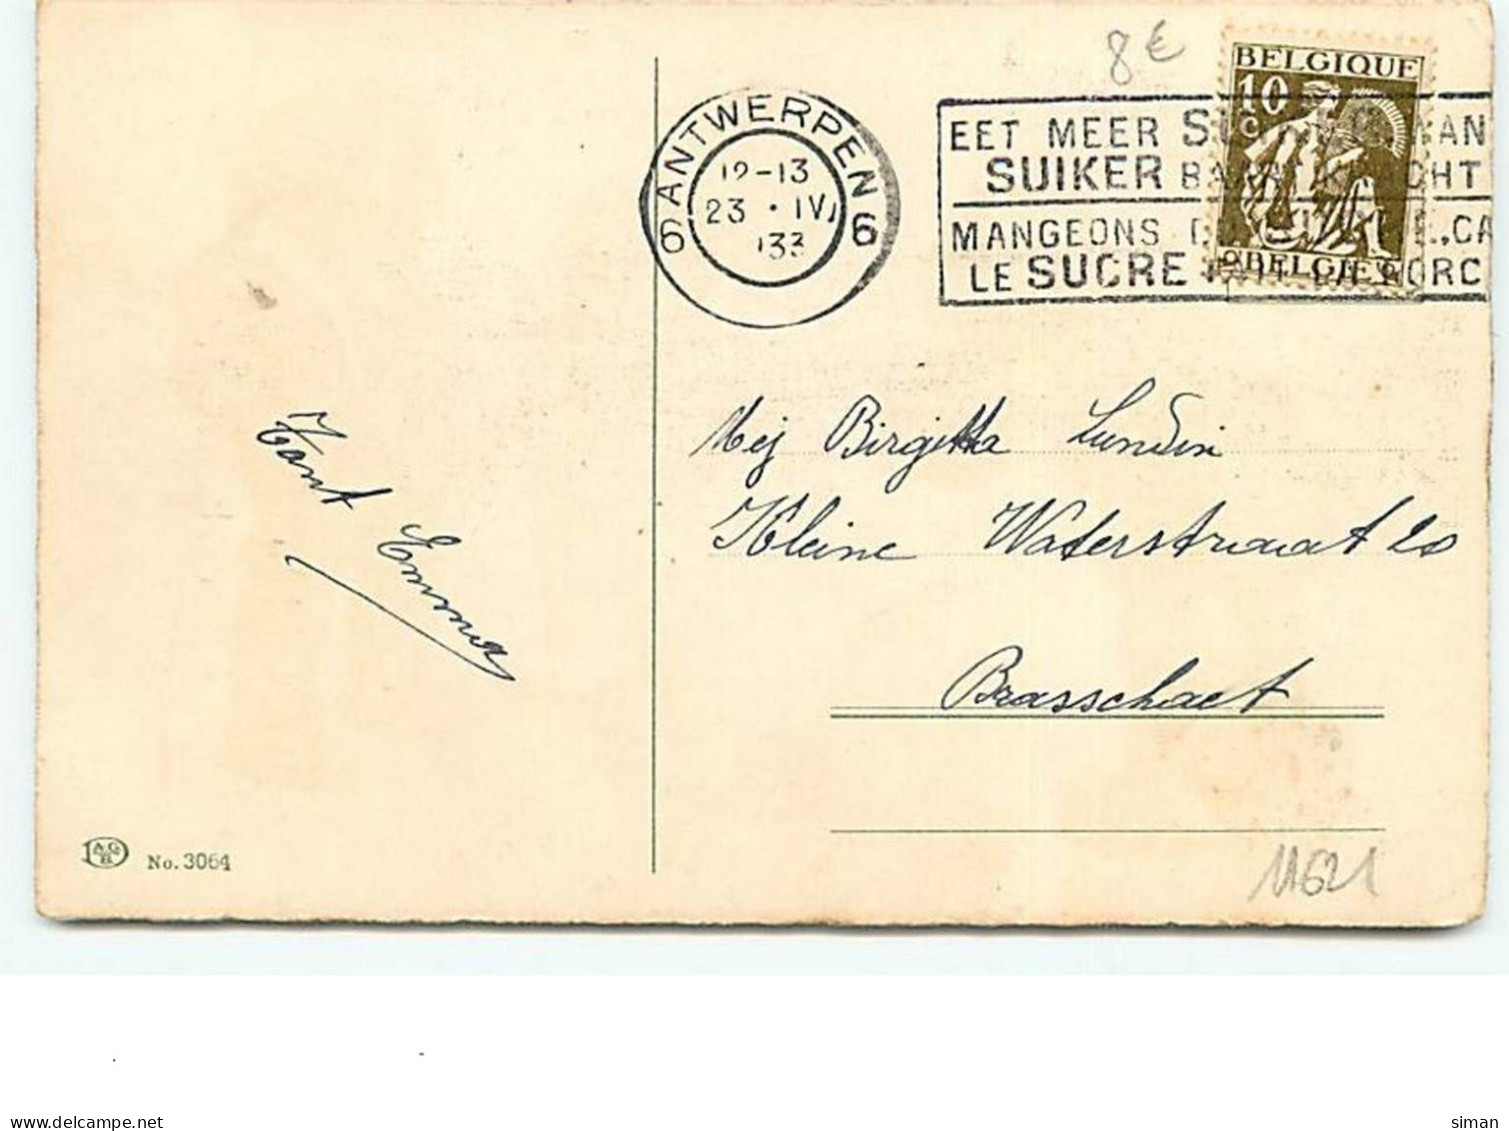 8 €
BELGIQUE
10
C
BELGIË
6 ANTWERPEN 6
12-13
23 • IV
1933
EET MEER
SUIKER
MANGEONS
LE SUCRE
Mej Birgitta Lundin
Kleine Waterstraat 20
Brasschaet
Tant Emma
A.G.
B.
No. 3064
11621
delcampe.net
siman